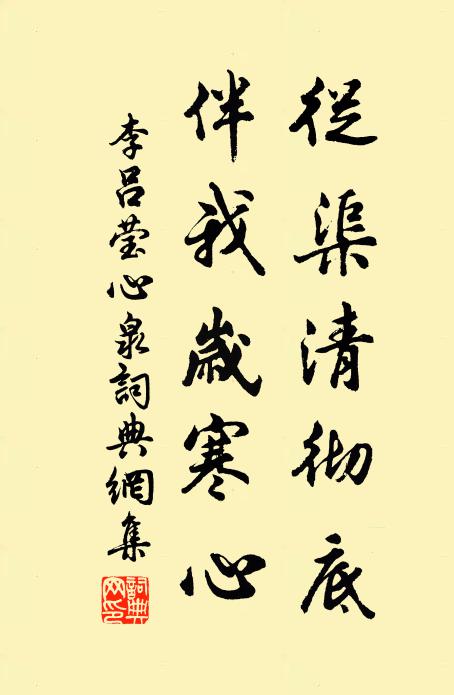 從渠清彻底
伴我歲寒心
李呂莹心泉詞典網集
詞典网印